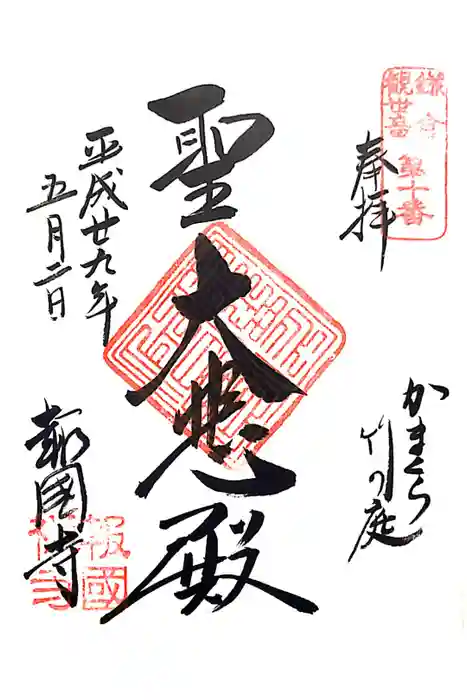 鎌倉
観世音
第十番
奉拝
かまくら
竹の庭
聖大悲殿
平成廿九年
五月二日
報國寺
報國
禅寺